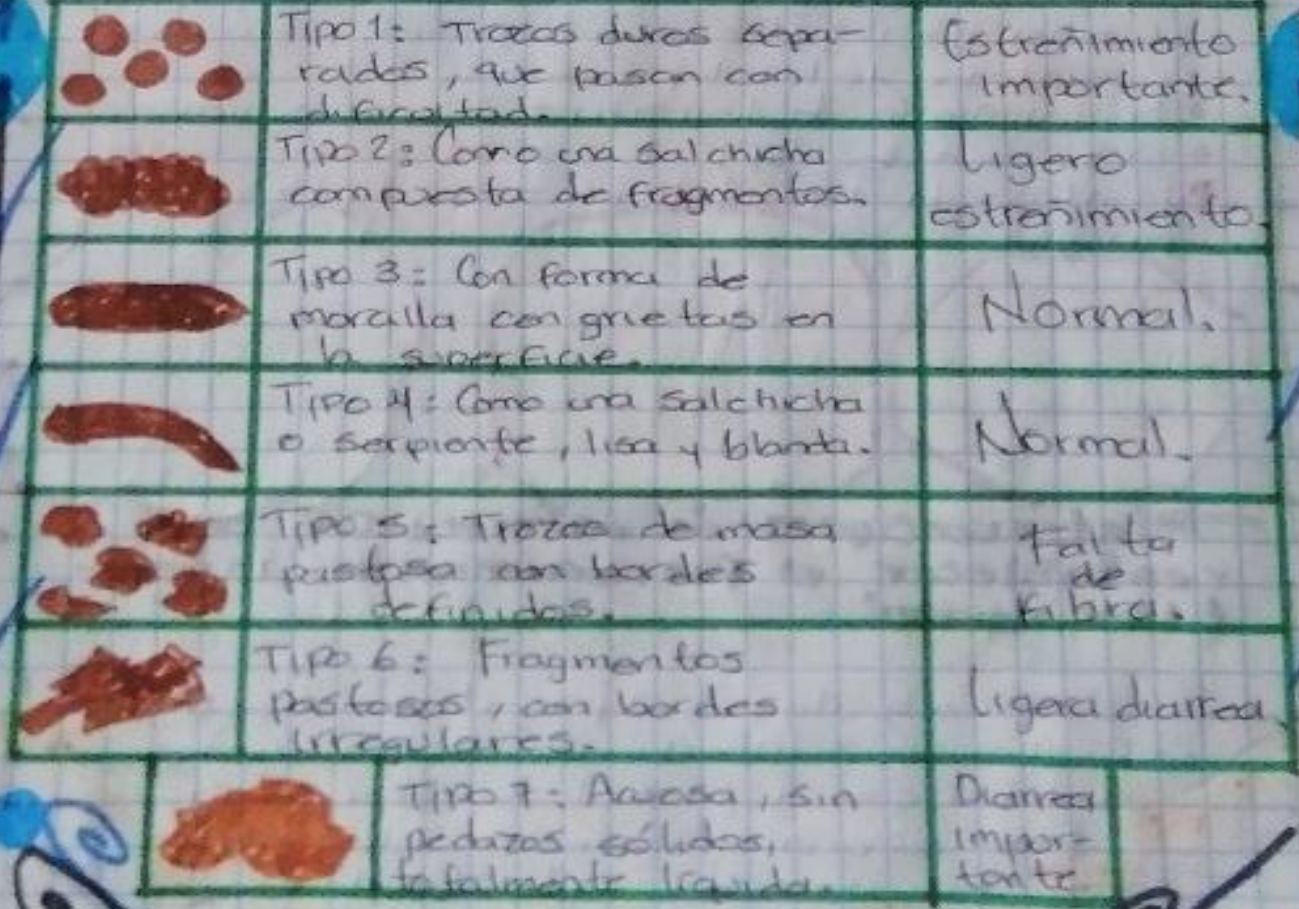 Tipo 1: Trozos duros sepa-
rados, que pasan con
dificultad.
Estreñimiento
importante.
Tipo 2: Como una salchicha
compuesta de fragmentos.
Ligero
estreñimiento.
Tipo 3: Con forma de
moralla con grietas en
la superficie.
Normal.
Tipo 4: Como una salchicha
o serpiente, lisa y blanda.
Normal.
Tipo 5: Trozos de masa
pastosa con bordes
definidos.
Falta
de
fibra.
Tipo 6: Fragmentos
pastosos, con bordes
irregulares.
Ligera diarrea
Tipo 7: Acuosa, sin
pedazos sólidos,
totalmente líquida.
Diarrea
impor-
tante